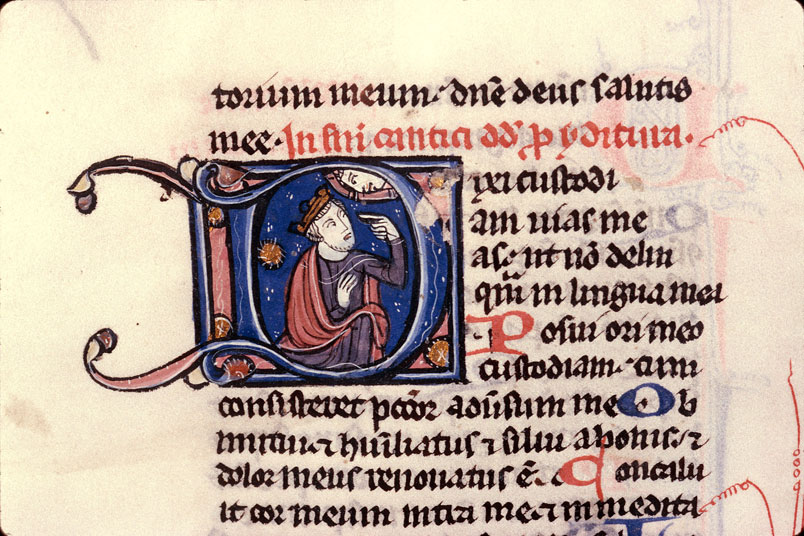 torium meum. dnē deus salutis
mee. In finē cantici dd̄ p̱ yditura.
Dixi custodi
am uias me
as. ut nō delin
quā in lingua mea
Posui ori meo
custodiam. cum
consisteret pccōr aduersum me. Ob
mutui ⁊ humiliatus ⁊ silui a bonis. ⁊
dolor meus renouatus ē. Concalu
it cor meum intra me. ⁊ in medita